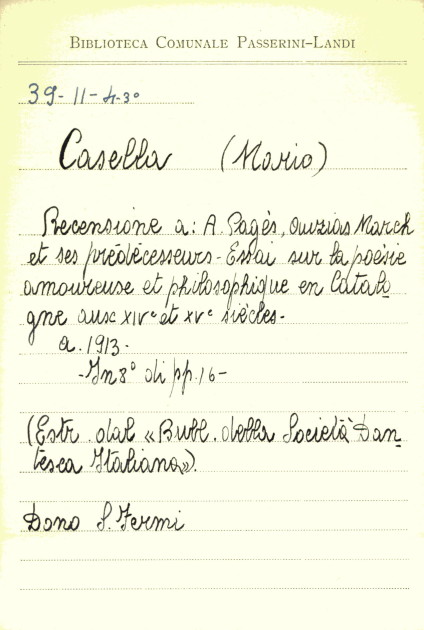 BIBLIOTECA COMUNALE PASSERINI-LANDI
39-11-4-3°
Casella (Mario)
Recensione a: A. Pagès, Auzias March
et ses prédécesseurs - Essai sur la poésie
amoureuse et philosophique en Catalo_
gne aux XIVe et XVe siècles -
a. 1913 -
- In 8° di pp. 16 -
(Estr. dal « Bull. della Società Dan_
tesca Italiana»).
Dono S. Fermi